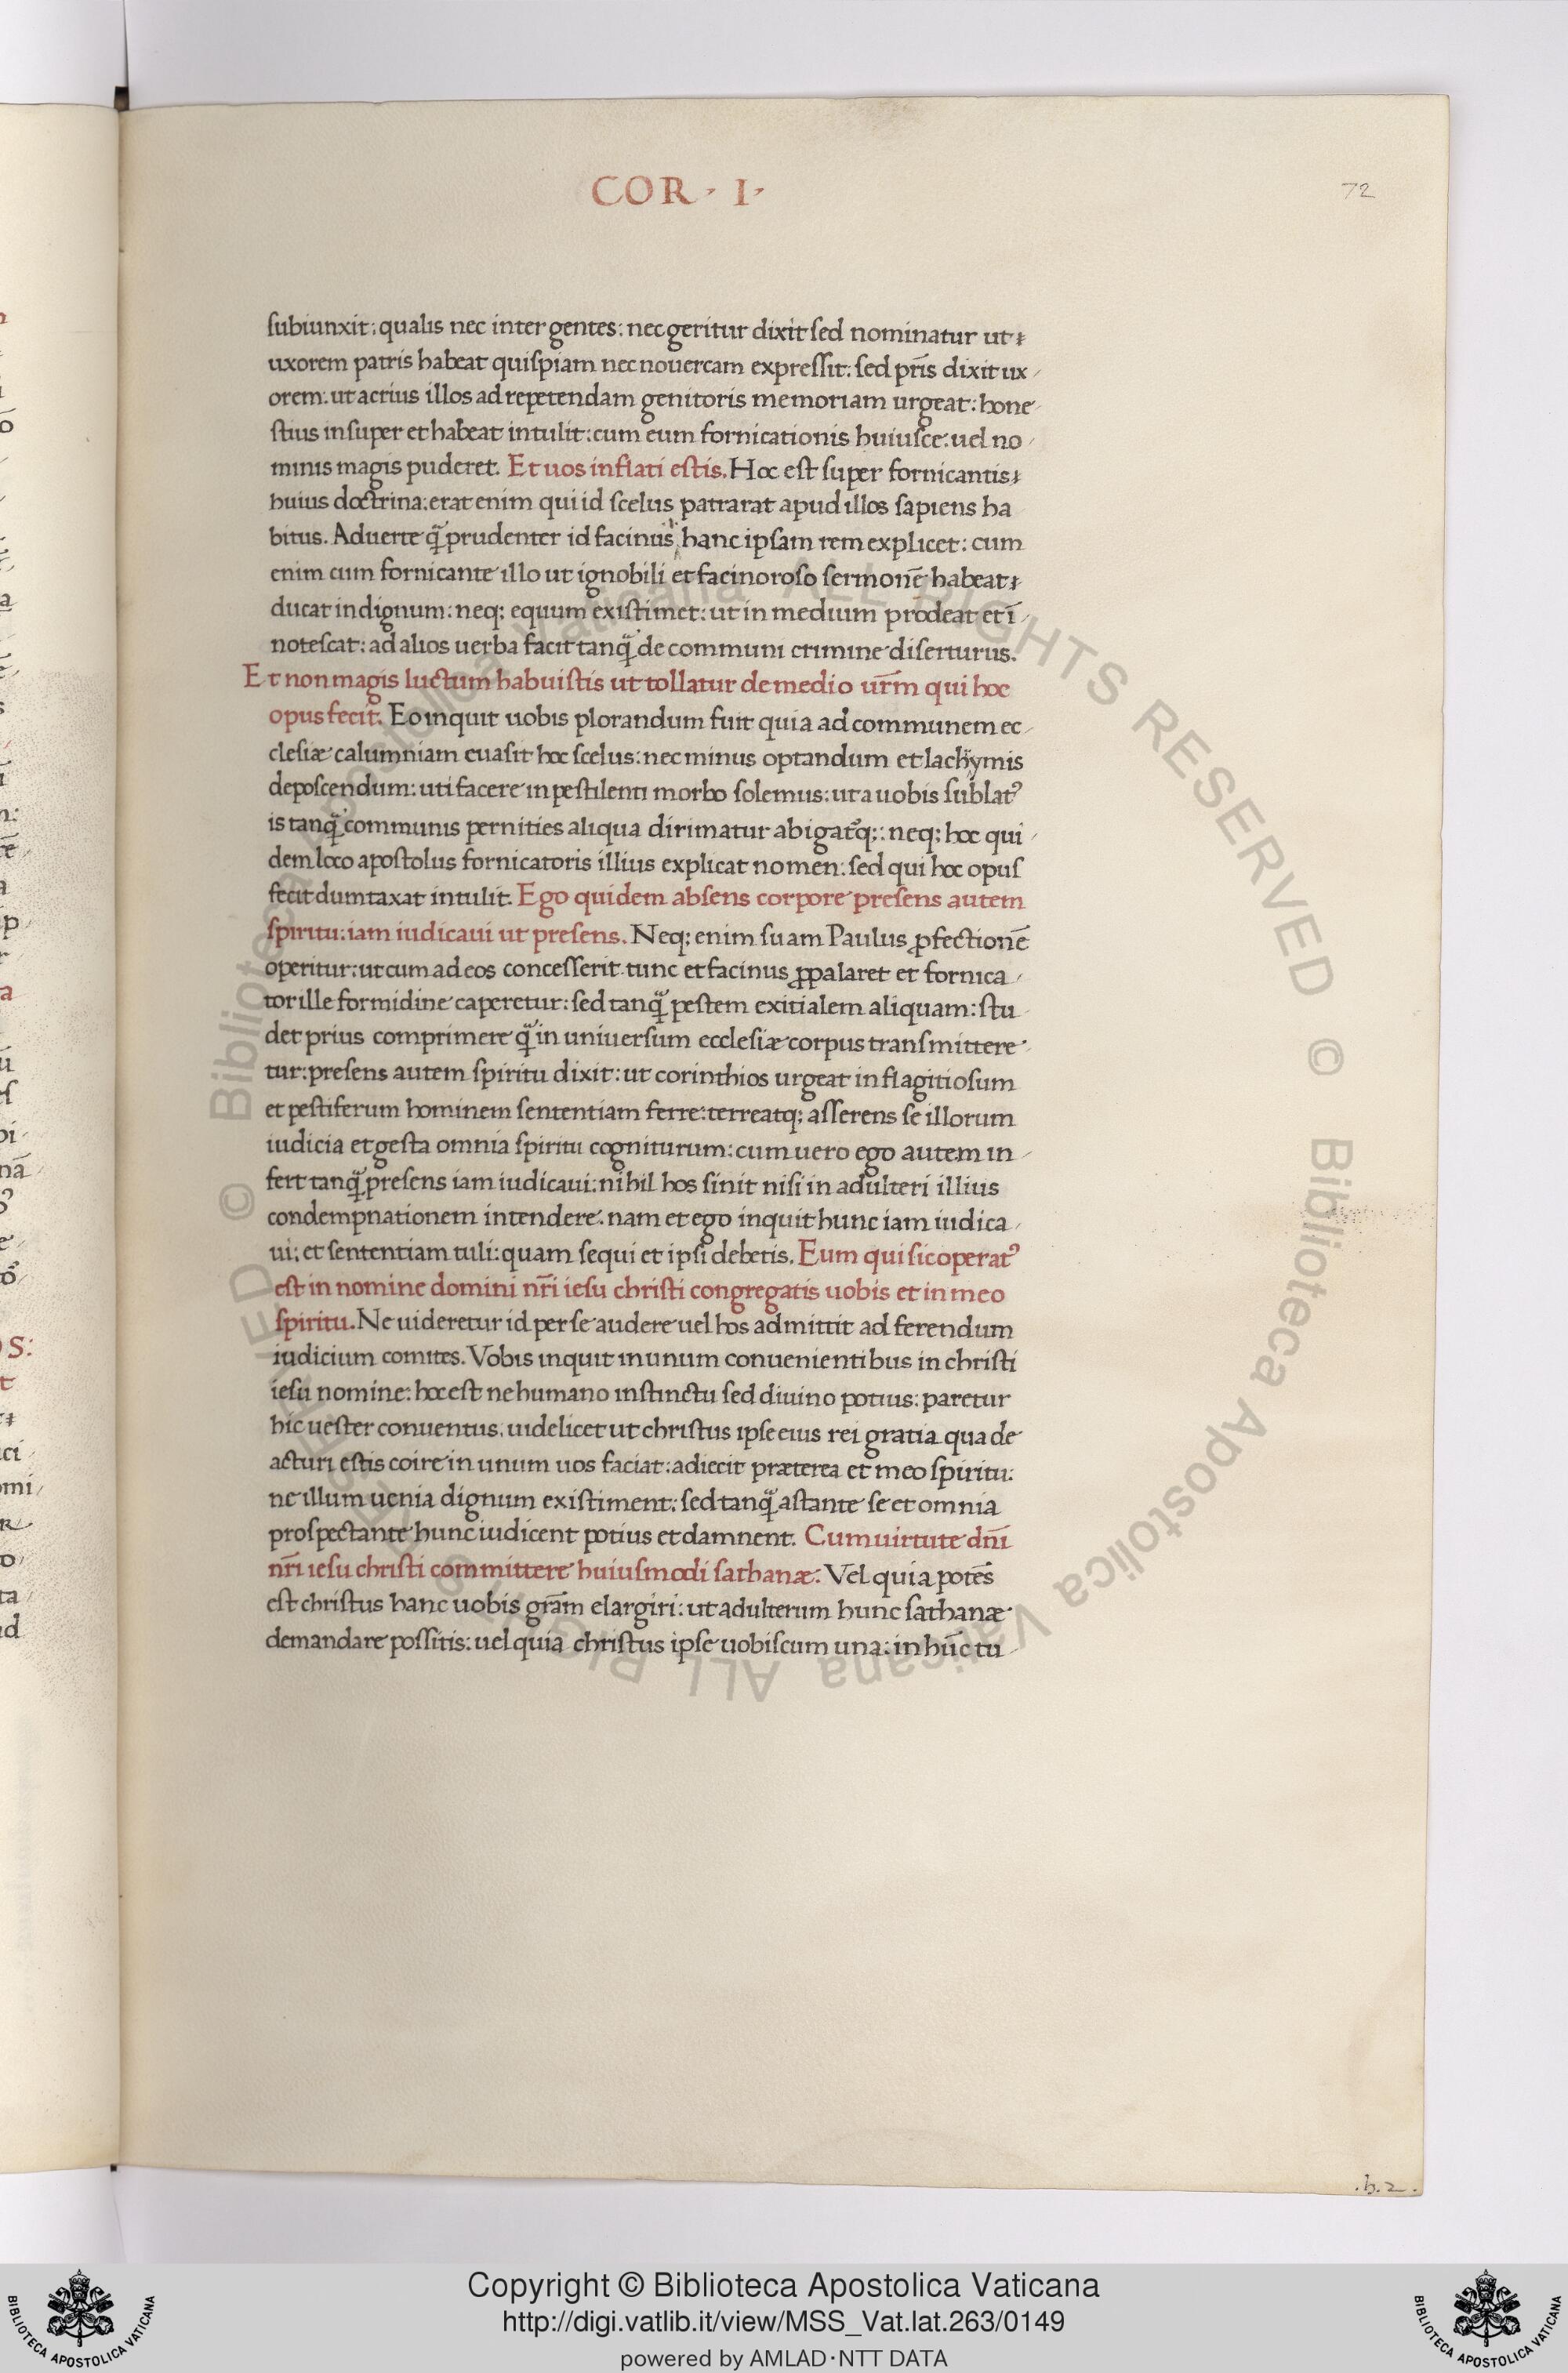 COR · I ·
72
subiunxit: qualis nec inter gentes: nec geritur dixit sed nominatur ut
uxorem patris habeat quispiam nec nouercam expressit: sed pr̄is dixit ux
orem: ut acrius illos ad repetendam genitoris memoriam urgeat: hone
stius insuper et habeat intulit: cum eum fornicationis huiusce: uel no
minis magis puderet. Et uos inflati estis. Hoc est super fornicantis
huius doctrina: erat enim qui id scelus patrarat apud illos sapiens ha
bitus. Aduerte q̃ prudenter id facinus hanc ipsam rem explicet: cum
enim cum fornicante illo ut ignobili et facinoroso sermonē habeat
ducat indignum: neq; equum existimet: ut in medium prodeat et ī
notescat: ad alios uerba facit tanq̃ de communi crimine diserturus.
Et non magis luctum habuistis ut tollatur de medio ur̄m qui hoc
opus fecit. Eo inquit uobis plorandum fuit quia ad communem ec
clesiæ calumniam euasit hoc scelus: nec minus optandum et lachymis
deposcendum: uti facere in pestilenti morbo solemus: ut a uobis sublat᾽
is tanq̃ communis pernities aliqua dirimatur abigat᾽q;: neq; hoc qui
dem loco apostolus fornicatoris illius explicat nomen: sed qui hoc opus
fecit dumtaxat intulit. Ego quidem absens corpore presens autem
spiritu: iam iudicaui ut presens. Neq; enim suam Paulus ꝓfectionē
operitur: ut cum ad eos concesserit tunc et facinus ꝓpalaret et fornica
tor ille formidine caperetur: sed tanq̃ pestem exitialem aliquam: stu
det prius comprimere q̃ in uniuersum ecclesiæ corpus transmittere
tur: presens autem spiritu dixit: ut corinthios urgeat in flagitiosum
et pestiferum hominem sententiam ferre: terreatq; asserens se illorum
iudicia et gesta omnia spiritu cogniturum: cum uero ego autem in
fert tanq̃ presens iam iudicaui: nihil hos sinit nisi in adulteri illius
condempnationem intendere: nam et ego inquit hunc iam iudica
ui: et sententiam tuli: quam sequi et ipsi debetis. Eum qui sic operat᾽
est in nomine domini nr̄i iesu christi congregatis uobis et in meo
spiritu. Ne uideretur id per se audere uel hos admittit ad ferendum
iudicium comites. Vobis inquit in unum conuenientibus in christi
iesu nomine: hoc est ne humano instinctu sed diuino potius: paretur
hic uester conuentus. uidelicet ut christus ipse eius rei gratia qua de
acturi estis coire in unum uos faciat: adiecit præterea et meo spiritu:
ne illum uenia dignum existiment: sed tanq̃ astante se et omnia
prospectante hunc iudicent potius et damnent. Cum uirtute dn̄i
nr̄i iesu christi committere huiusmodi sathanæ: Vel quia potēs
est christus hanc uobis gr̄am elargiri: ut adulterum hunc sathanæ
demandare possitis: uel quia christus ipse uobiscum una: in hūc tu
.h.2.
© Biblioteca Apostolica Vaticana ALL RIGHTS RESERVED
© Biblioteca Apostolica Vaticana ALL RIGHTS RESERVED
Copyright © Biblioteca Apostolica Vaticana
http://digi.vatlib.it/view/MSS_Vat.lat.263/0149
powered by AMLAD·NTT DATA
BIBLIOTECA APOSTOLICA VATICANA
BIBLIOTECA APOSTOLICA VATICANA